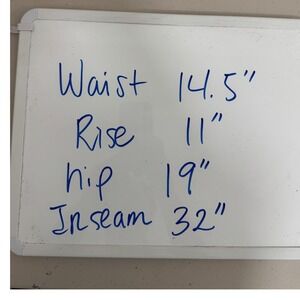 Waist 14.5"
Rise 11"
hip 19"
Inseam 32"